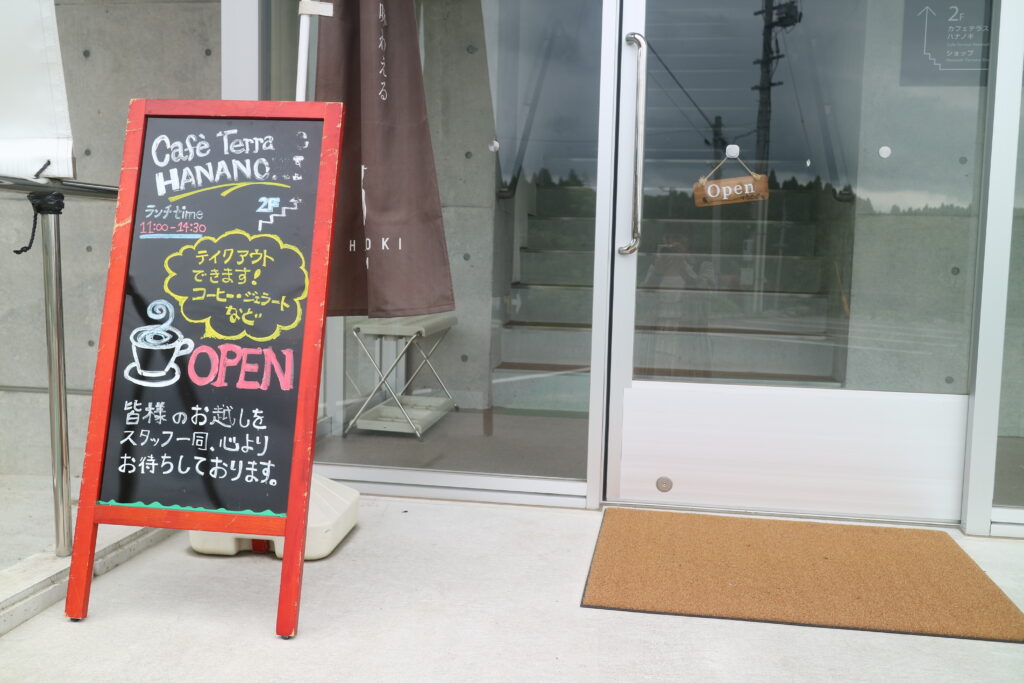 Cafè Terra
HANANO
2F
ランチtime
11:00-14:30
テイクアウト
できます!
コーヒー・ジェラート
など
OPEN
皆様のお越しを
スタッフ一同、心より
お待ちしております。
味わえる
HOKI
Open
2F
カフェテラス
ハナノキ
ショップ